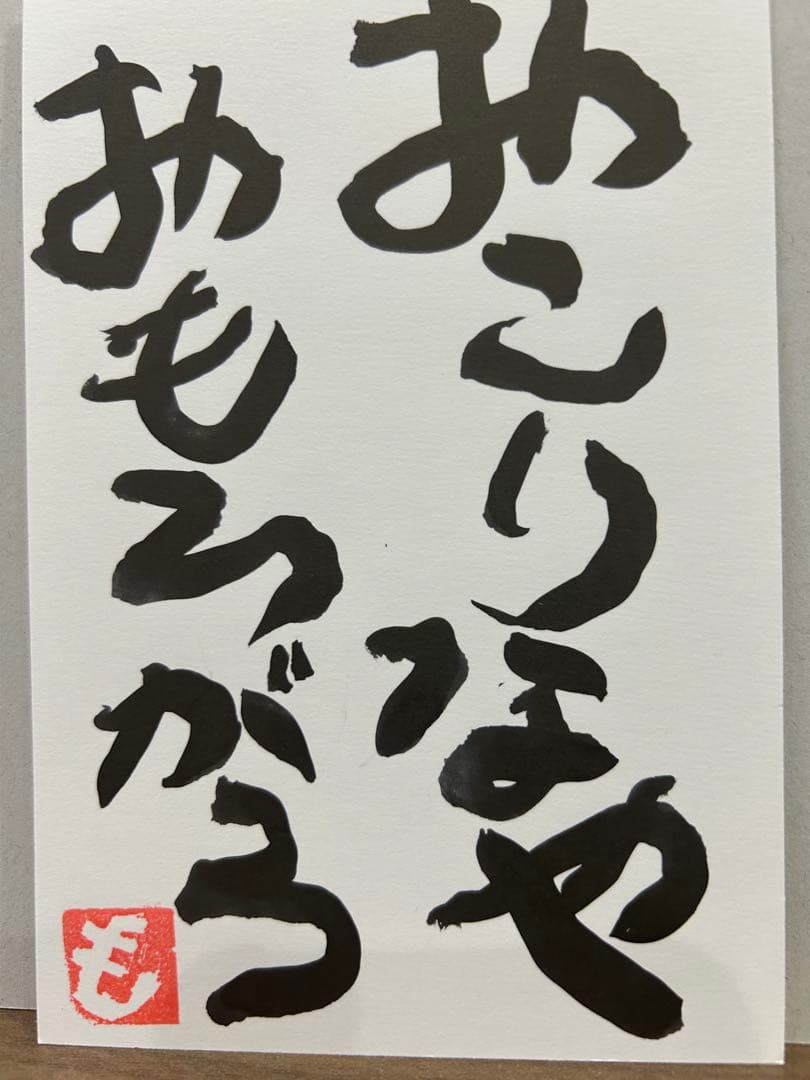 おこりなや
おもろがろ
も